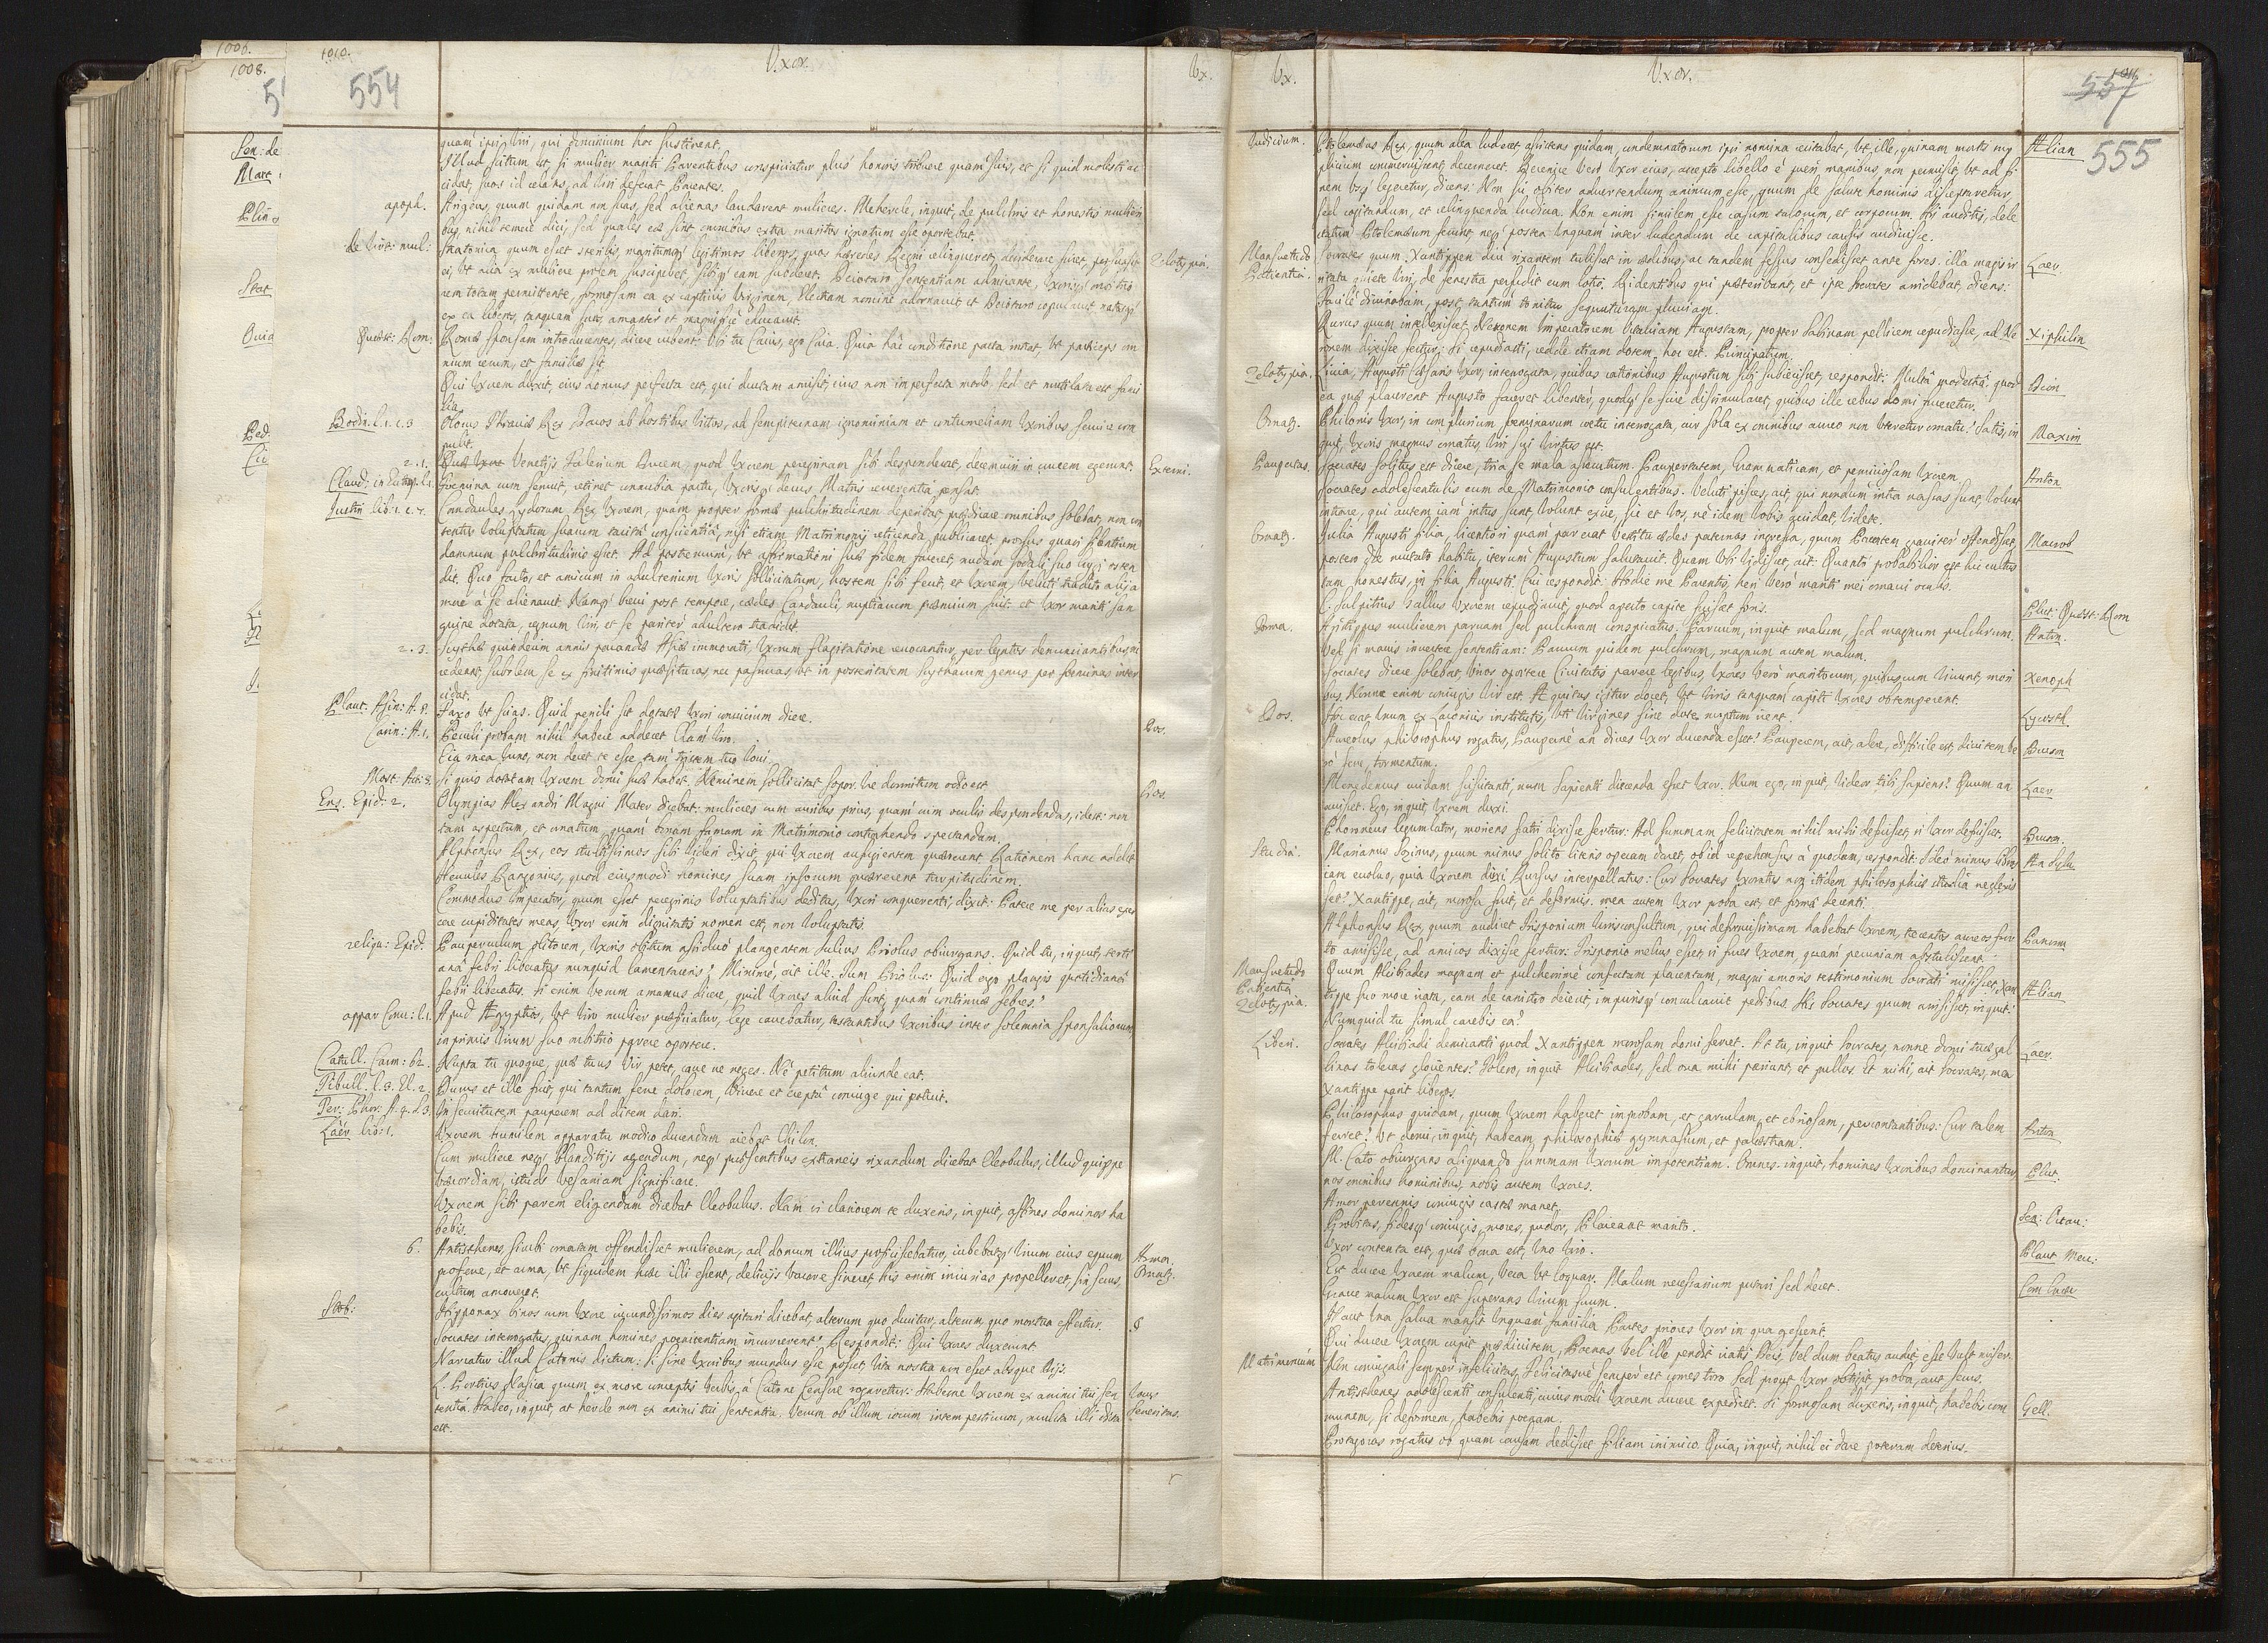 1006.
1008.
1010.
554
Uxor.
Ux.
Sen: de
Marc
Plin
Stat
Ouid
Ped.
Cic
quam ipsi Viri, qui dominium hoc sustinent.
Illud scitum est, si mulier mariti Parentibus conspiciatur plus honoris tribuere quam suis, et si quid molesti ac
cidat, suos id celans, ad Viri deferat Parentes.
apoph. quum quidam non suas, sed alienas laudarent mulieres. Mehercle, inquit, de pulchris et honestis mulieri
bus, nihil temere dici, sed quales eae sint omnibus extra maritos ignotum esse oportebat.
de Virt: mul: Stratonica quum esset sterilis, maritumq; legitimos liberos, quos haeredes Regni relinqueret, desiderare sciret, persuasit
ei, ut alia ex muliere prolem susciperet, sibiq; eam subderet. Deiotaro sententiam admirante, Uxoriq;
rem totam permittente, formosam ea ex captiuis Virginem, Electram nomine adornauit et Deiotaro copulauit natosq;
ex ea liberos, tanquam suos, amanter et magnifice educauit.
Zelotypia.
Quaest: Rom: Romae sponsam introducentes, dicere iubent: Ubi tu Caius, ego Caia. Quia hac conditione pacta initat, ut particeps om
nium rerum, et familias sit.
Qui Uxorem duxit, eius domus perfecta est, qui ductam amisit, eius non imperfecta modo, sed et mutilata est fami
lia.
Bodin. l. 1. c. 3 Olorus Thraciae Rex Dacos ab hostibus Victos, ad sempiternam ignominiam et contumeliam Uxoribus seruire com
pulit.
2. 1. Venetijs Falerium Ducem, quod Uxorem peregrinam sibi desponderat, decemuiri in crucem egerunt. Externi.
Claud: in Eutrop. l. 1. Foemina cum senuit, retinet connubia partu, Uxorisq; decus Matris reuerentia pensat.
Justin lib: 1. c. 7. Candaules Lydorum Rex Uxorem, quam propter formae pulchritudinem deperibat, praedicare omnibus solebat, non con
tentus Voluptatum suarum tacita conscientia, nisi etiam Matrimonij reticenda publicaret, prorsus quasi silentium
damnum pulchritudinis esset. Ad postremum, ut affirmationi suae fidem faceret, nudam sodali suo Gygi osten
dit. Quo facto, et amicum in adulterium Uxoris sollicitatum, hostem sibi fecit, et Uxorem, veluti tradito alijs a
more à se alienauit. Namq; breui post tempore, caedes Candauli, nuptiarum praemium fuit: et Uxor mariti san
guine dotata, regnum Viri, et se pariter adultero tradidit.
2. 3. Scythae quindecim annis pacanda Asia immorati, Uxorum flagitatione reuocantur, per legatos denunciantibus, ni
redeant: subolem se ex finitimis quaesituras, nec passuras, ut in posteritatem Scytharum genus per foeminas inter
cidat.
Plaut. Asin: A. 5. Faxo ut scias. Quid pericli sit dotatae Uxori uncinium dicere. Dos.
Casin: A. 1. Peculi probam nihil habere addecet Clam Viro.
Eia mea Juno, non decet te esse tam tristem tuo Joui.
Most: Act: 3. Si quis dotatam Uxorem domi suae habet, Neminem sollicitat sopor. Ire dormitum odio est. Dos.
Ens. Epid: 2. Olympias Alexandri Magni Mater dicebat: mulieres cum auribus prius, quam cum oculis despondendas, idest: non
tam aspectum, et ornatum, quam bonam famam in Matrimonio contrahendo spectandam.
Alphonsus Rex, eos stultissimos sibi Videri dixit, qui Uxorem aufugientem quaererent. Rationem hanc addebat
Hercules Rangonius, quod eiusmodi homines suam ipsorum quaererent turpitudinem.
Commodus Imperator, quum esset peregrinis Voluptatibus deditus, Uxori conquerenti, dixit: Patere me per alias exer
cere cupiditates meas, Uxor enim dignitatis nomen est, non Voluptatis.
reliqu: Epid: Pauperculum olitorem, Uxoris obitum assiduo plangentem Julius Briolus obiurgans. Quid tu, inquit, terti
ana febri liberatus nunquid lamentaueris? Minimè, ait ille. Tum Briolus: Quid ergo plangis quotidiana
febri liberatus. Si enim verum amamus dicere, quid Uxores aliud sunt, quam continuae febres?
appar. Conu: l. 1. Apud Aegyptios, ut Viro mulier praeficiatur, lege cauebatur, testantibus Uxoribus inter solemnia sponsaliorum
inprimis Virum suo arbitrio parere oportere.
Catull. Carm: 62. Nupta tu quoque, quae tuus Vir petet, caue ne neges. Ne petitum aliunde eat.
Tibull. l. 3. El. 2. Durus et ille fuit, qui tantum ferre dolorem, Viuere et erepta coniuge qui potuit.
Ter: Phor: A. 4. S. 3. In seruitutem pauperem ad ditem dari.
Laër. lib: 1. Uxorem humilem apparatu modico ducendam aiebat Chilon.
Cum muliere neq; blanditijs agendum, neq; praesentibus extraneis rixandum dicebat Cleobulus, illud quippe
vecordiam, istud vesaniam significare.
Uxorem sibi parem eligendam dicebat Cleobulus. Nam si clariorem te duxeris, inquit, affines dominos ha
bebis.
6. Antisthenes, sicubi ornatam offendisset mulierem, ad domum illius proficiscebatur, iubebatq; Virum eius equum
proferre, et arma, ut siquidem haec illi essent, delicijs vacare sineret, his enim iniurias propelleret, sin secus,
cultum amoueret.
Arma.
Ornatq;.
Stob: Hipponax binos cum Uxore iucundissimos dies agitari dicebat, alterum quo ducitur, alterum quo mortua effertur.
Socrates interrogatus, quinam homines poenitentiam incurrerent? Respondit: Qui Uxores duxerunt
Narratur illud Catonis dictum: Si sine Uxoribus mundus esse posset, Vita nostra non esset absque Dijs.
L. Porcius Nasica quum ex more conceptis Verbis à Catone Censore rogaretur: Habesne Uxorem ex animi tui sen
tentia. Habeo, inquit, at hercle non ex animi tui sententia. Verum ob illum iocum intempestiuum, mulcta illi dicta
est.
Iocus
Seueritas.
Ux.
Uxor.
557
555
Iudicium. Ptolemaeus Rex, quum alea luderet, assistens quidam, condemnatorum ipsi nomina recitabat, ut ille, quinam mortis sup
plicium commeruissent, decerneret. Berenice vero Uxor eius, accepto libello è pueri manibus non permisit, ut ad fi
nem Usq; legeretur, diens: Non sic obiter aduertendum animum esse, quum de salute hominis disceptaretur,
sed cogitandum, et relinquenda ludicra. Non enim similem esse casum talorum, et corporum. His auditis, dele
ctatum Ptolemaeum ferunt neq; postea Unquam inter ludendum de capitalibus causis audiuisse.
Aelian
Mansuetudo
Patientia.
Socrates quum Xantippen diu rixantem tulisset in aedibus, ac tandem fessus consedisset ante fores. illa magis ir
ritata quiete Viri, de fenestra perfudit eum lotio. Ridentibus qui praeteribant, et ipse Socrates arridebat, dicens:
Facile diuinabam, post tantum tonitru sequuturam pluuiam.
Laer.
Burrus quum intellexisset, Neronem Imperatorem Octauiam Augustam, propter Sabinam pellicem repudiasse, ad Ne
ronem dixisse fertur: Si repudiasti, redde etiam dotem, hoc est. Principatum.
Xiphilin
Zelotypia. Liuia, Augusti Caesaris Uxor, interrogata, quibus rationibus Augustum sibi subiecisset, respondit: Multa modestia: quod
ea quae placerent Augusto faceret libenter, quodq; se scire dissimularet, quibus ille rebus domi moueretur.
Dion
Ornatq;. Philonis Uxor, in complurium foeminarum coetu interrogata, cur sola ex omnibus aureo non Uteretur ornatu? Satis, in
quit, Uxoris magnus ornatus, Viri sui Virtus est.
Maxim
Paupertas. Socrates solitus est dicere, tria se mala assecutum. Paupertatem, Grammaticam, et perniciosam Uxorem.
Socrates adolescentulis eum de Matrimonio consulentibus. Veluti pisces, ait, qui nondum intra nassas sunt, Volunt
intrare, qui autem iam intus sunt, Volunt exire, sic et Vos, ne idem Vobis accidat, Videte.
Anton
Ornatq;. Julia Augusti filia, licentiori quam par erat Vestitu aedes paternas ingressa, quum Parentem grauiter offendisset,
postero die mutato habitu, iterum Augustum salutauit. Quam ubi Vidisset, ait: Quanto probabilior est hic cultus
tam honestus, in filia Augusti? Cui respondit: Hodie me Parentis, heri vero mariti mei ornaui oculis.
Macrob
C. Sulpitius Gallus Uxorem repudiauit, quod aperto capite fuisset foris. Plut: Quaest: Rom
Forma. Aristippus mulierem paruam sed pulchram conspicatus. Paruum, inquit malum, sed magnum pulchrum.
Vel si mauis inuertere sententiam: Paruum quidem pulchrum, magnum autem malum. Anton.
Socrates dicere solebat Viros oportere Ciuitatis parere legibus, Uxores vero maritorum, quibuscum Viuunt, mori
bus. Norma enim coniugis Vir est. Aequitas igitur docet, ut Viris tanquam capiti Uxores obtemperent.
Xenoph
Dos. Hoc erat Unum ex Laconicis institutis, ut Virgines sine dote nuptum irent. Lycosth.
Aureolus philosophus rogatus, Pauperne an diues Uxor ducenda esset? Pauperem, ait, alere, difficile est, diuitem ve
rò ferre, tormentum.
Bruson
Menedemus cuidam sciscitanti, num sapienti ducenda esset Uxor. Num ego, inquit, Videor tibi sapiens? Quum an
nuisset. Ego, inquit Uxorem duxi.
Laer
Phoroneus legumlator, moriens fratri dixisse fertur: Ad summam felicitatem nihil mihi defuisset, si Uxor defuisset. Bruson.
Studia. Marianus Sozinus, quum minus solito literis operam daret, ob id reprehensus à quodam, respondit: Ideo minus libros
iam euoluo, quia Uxorem duxi. Rursus interpellatus: Cur Socrates Uxoratus non itidem philosophiae studia neglexis
set? Xantippe, ait, morosa fuit, et deformis. mea autem Uxor proba est, et forma decenti.
Aen. Sylu
Alphonsus Rex, quum audiret Trisponium Iurisconsultum, qui deformissimam habebat Uxorem, trecentos aureos fur
to amisisse, ad amicos dixisse fertur. Trisponio melius esset, si fures Uxorem, quam pecuniam abstulissent.
Panorm
Mansuetudo
Patientia
Zelotypia.
Quum Alcibiades magnam et pulcherrime confectam placentam, magni amoris testimonium Socrati misisset, Xan
tippe suo more irata, eam de canistro deiecit, impurisq; conculcauit pedibus. His Socrates quum arrisisset, inquit:
Numquid tu simul carebis ea?
Aelian
Liberi. Socrates Alcibiadi demiranti quod Xantippen morosam domi ferret. At tu, inquit Socrates, nonne domi tuae gal
linas toleras glocientes? Tolero, inquit Alcibiades, sed oua mihi pariunt, et pullos. Et mihi, ait Socrates, mea
Xantippe parit liberos.
Laer.
Philosophus quidam, quum Uxorem haberet improbam, et garrulam, et ebriosam, percontantibus: Cur talem
ferret? Ut domi, inquit, habeam philosophiae gymnasium, et palaestram.
Anton
M. Cato obiurgans aliquando summam Uxorum impotentiam. Omnes, inquit, homines Uxoribus dominantur,
nos omnibus hominibus, nobis autem Uxores.
Plut.
Amor perennis coniugis castae manet.
Probitas, fidesq; coniugis, mores, pudor, Placeant marito.
Sen: Octau:
Uxor contenta est, quae bona est, Uno Viro. Plaut Merc:
Est ducere Uxorem malum, Vera ut loquar. Malum necessarium putari sed decet.
Graue malum Uxor est superans Virum suum.
Haut Una salua mansit Unquam familia Partes priores Uxor in qua gesserit.
Qui ducere Uxorem cupit praediuitem, Poenas vel ille pendit iratis Deis, Vel dum beatus audit, esse Vult miser.
Com Graecae
Matrimonium Non coniugali semper infelicitas, Felicitasue semper est comes toro Sed prout Uxor obtigit proba, aut secus.
Antisthenes adolescenti consulenti, cuiusmodi Uxorem ducere expediret. Si formosam duxeris, inquit, habebis com
munem, si deformem, habebis poenam.
Gell.
Protagoras rogatus ob quam causam dedisset filiam inimico. Quia, inquit, nihil ei dare poteram deterius.